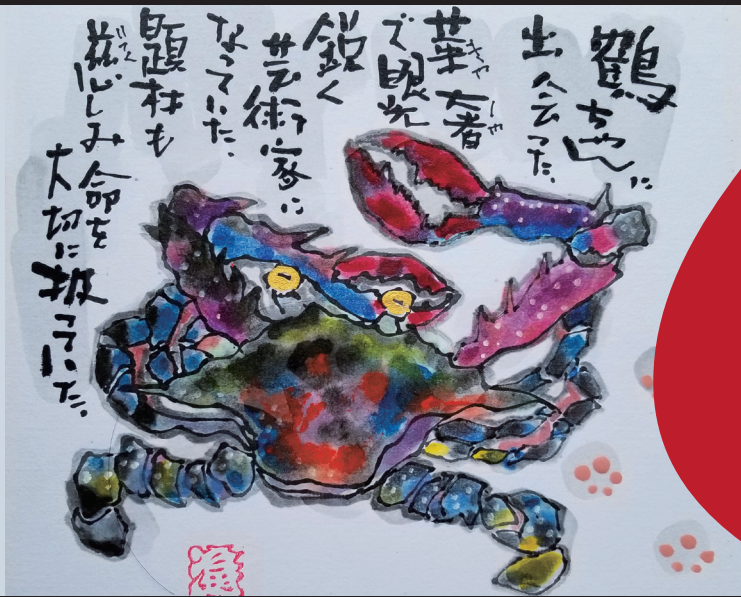 鶴ちゃんに
出会った、
華奢
で眼光
鋭く
芸術家に
なっていた、
題材も
慈しみ命を
大切に扱っていた。